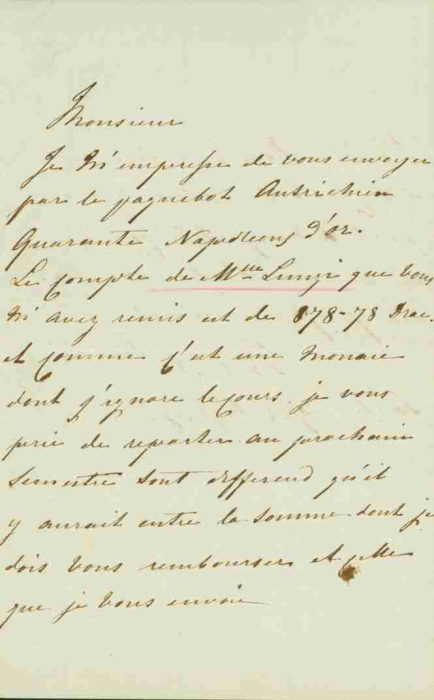 Monsieur
Je m'empresse de vous envoyer
par le paquebot Autrichien
Quarante Napoléons d'or.
Le Compte de Mme que vous
m'avez remis est de 878-78 Drac.
et comme c'est une monaie
dont j'ignore le cours je vous
prie de reporter au prochain
Semestre tout differend qu'il
y aurait entre la somme dont je
dois vous rembourser et celle
que je vous envoie